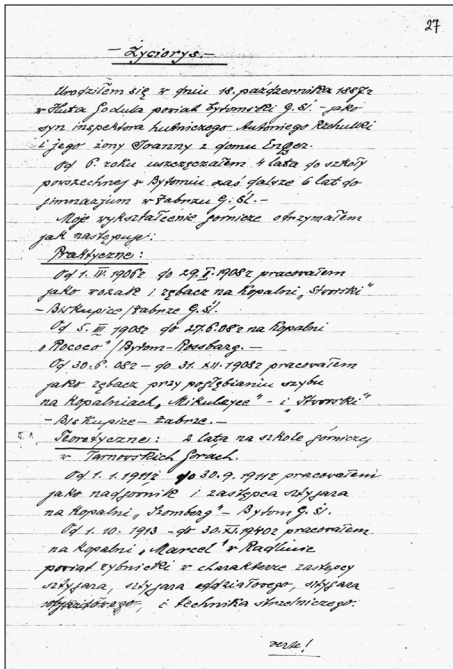 27
- Życiorys. -
Urodziłem się w dniu 18. października 1887r
w Huta Godula powiat Bytomski G. Śl. - jako
syn inspektora hutniczego Antoniego
i jego żony Joanny z domu
Od 6. roku uszczęszczałem 4 lata do szkoły
powszechnej w Bytomiu zaś dalsze 6 lat do
gimnazjum w Zabrzu G. Śl. -
Moje wykształcenie górnicze otrzymałem
jak następuje:
Praktyczne:
Od 1. IV. 1906r do 29. 1908r pracowałem
jako wozak i rębacz na Kopalni
- Biskupice / Zabrze G. Śl.
Od 5. III 1908r do 27.6.08r na Kopalni
"Rococo" / Bytom - Rosbarg. -
Od 30.6. 08r - do 31. XII. 1908r pracowałem
jako rębacz przy pogłębianiu szybu
na Kopalniach - i
- Biskupice - Zabrze. -
Teoretyczne: 2 lata na szkole górniczej
w Tarnowskich Górach.
Od 1. 1. 1911r do 30. 9. 1911r pracowałem
jako nadgórnik i zastępca sztygara
na Kopalni - Bytom G. Śl.
Od 1. 10. 1913 - do 30. XI. 1940r pracowałem
na Kopalni "Marcel" w Radlinie
powiat rybnicki w charakterze zastępcy
sztygara, sztygara oddziałowego, sztygara
i technika strzelniczego.
verte!